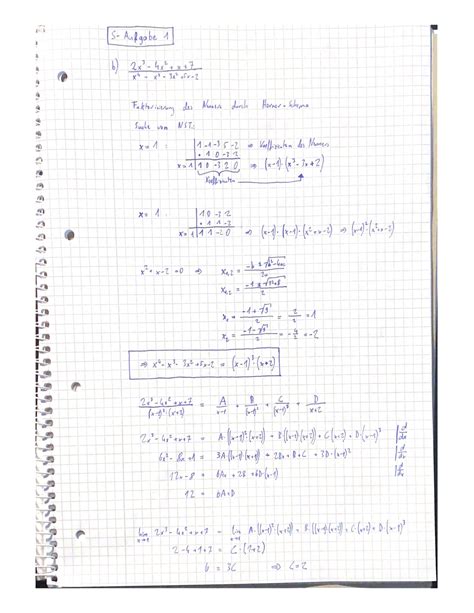 S-Aufgabe 1
b) (2x³ - 4x² + x + 7)/(x⁴ - x³ - 3x² + 5x - 2)
Faktorisierung des Nenners durch Horner-Schema
Suche von NST:
x = 1 : | 1 -1 -3 5 -2 ⇒ Koeffizienten des Nenners
+ 1 0 -3 2
x=1 | 1 0 -3 2 0 ⇒ (x-1)·(x³ - 3x + 2)
Koeffizienten
x = 1 : | 1 0 -3 2
+ 1 1 -2
x=1 | 1 1 -2 0 ⇒ (x-1)·(x-1)·(x² + x - 2) ⇒ (x-1)²·(x² + x - 2)
x² + x - 2 = 0 ⇒ x₁,₂ = (-b ± √(b² - 4ac))/2a
x₁,₂ = (-1 ± √(1² + 8))/2
x₁ = (-1 + √9)/2 = 2/2 = 1
x₂ = (-1 - √9)/2 = -4/2 = -2
⇒ x⁴ - x³ - 3x² + 5x - 2 = (x-1)³·(x+2)
(2x³ - 4x² + x + 7)/((x-1)³·(x+2)) = A/(x-1) + B/(x-1)² + C/(x-1)³ + D/(x+2)
2x³ - 4x² + x + 7 = A·((x-1)²·(x+2)) + B((x-1)(x+2)) + C(x+2) + D·(x-1)³ | d/dx
6x² - 8x + 1 = 3A((x-1)(x+1)) + 2Bx + B + C + 3D(x-1)² | d/dx
12x - 8 = 6Ax + 2B + 6D(x-1) | d/dx
12 = 6A + D
lim x→1 2x³ - 4x² + x + 7 = lim x→1 A·((x-1)²·(x+2)) + B·((x-1)·(x+2)) + C·(x+2) + D·(x-1)³
2 - 4 + 1 + 7 = C·(1+2)
6 = 3C ⇒ C = 2